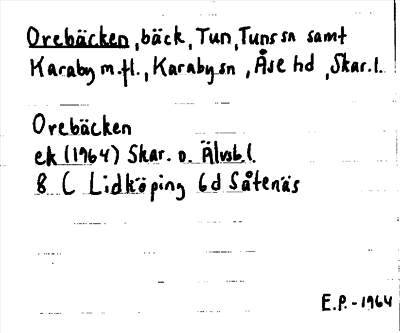 Orebäcken, bäck, Tun, Tuns sn samt
Karaby m.fl., Karaby sn, Åse hd, Skar.l.
Orebäcken
ek (1964) Skar. o. Älvsb l.
8 C Lidköping 6d Såtenäs
E.P. - 1964